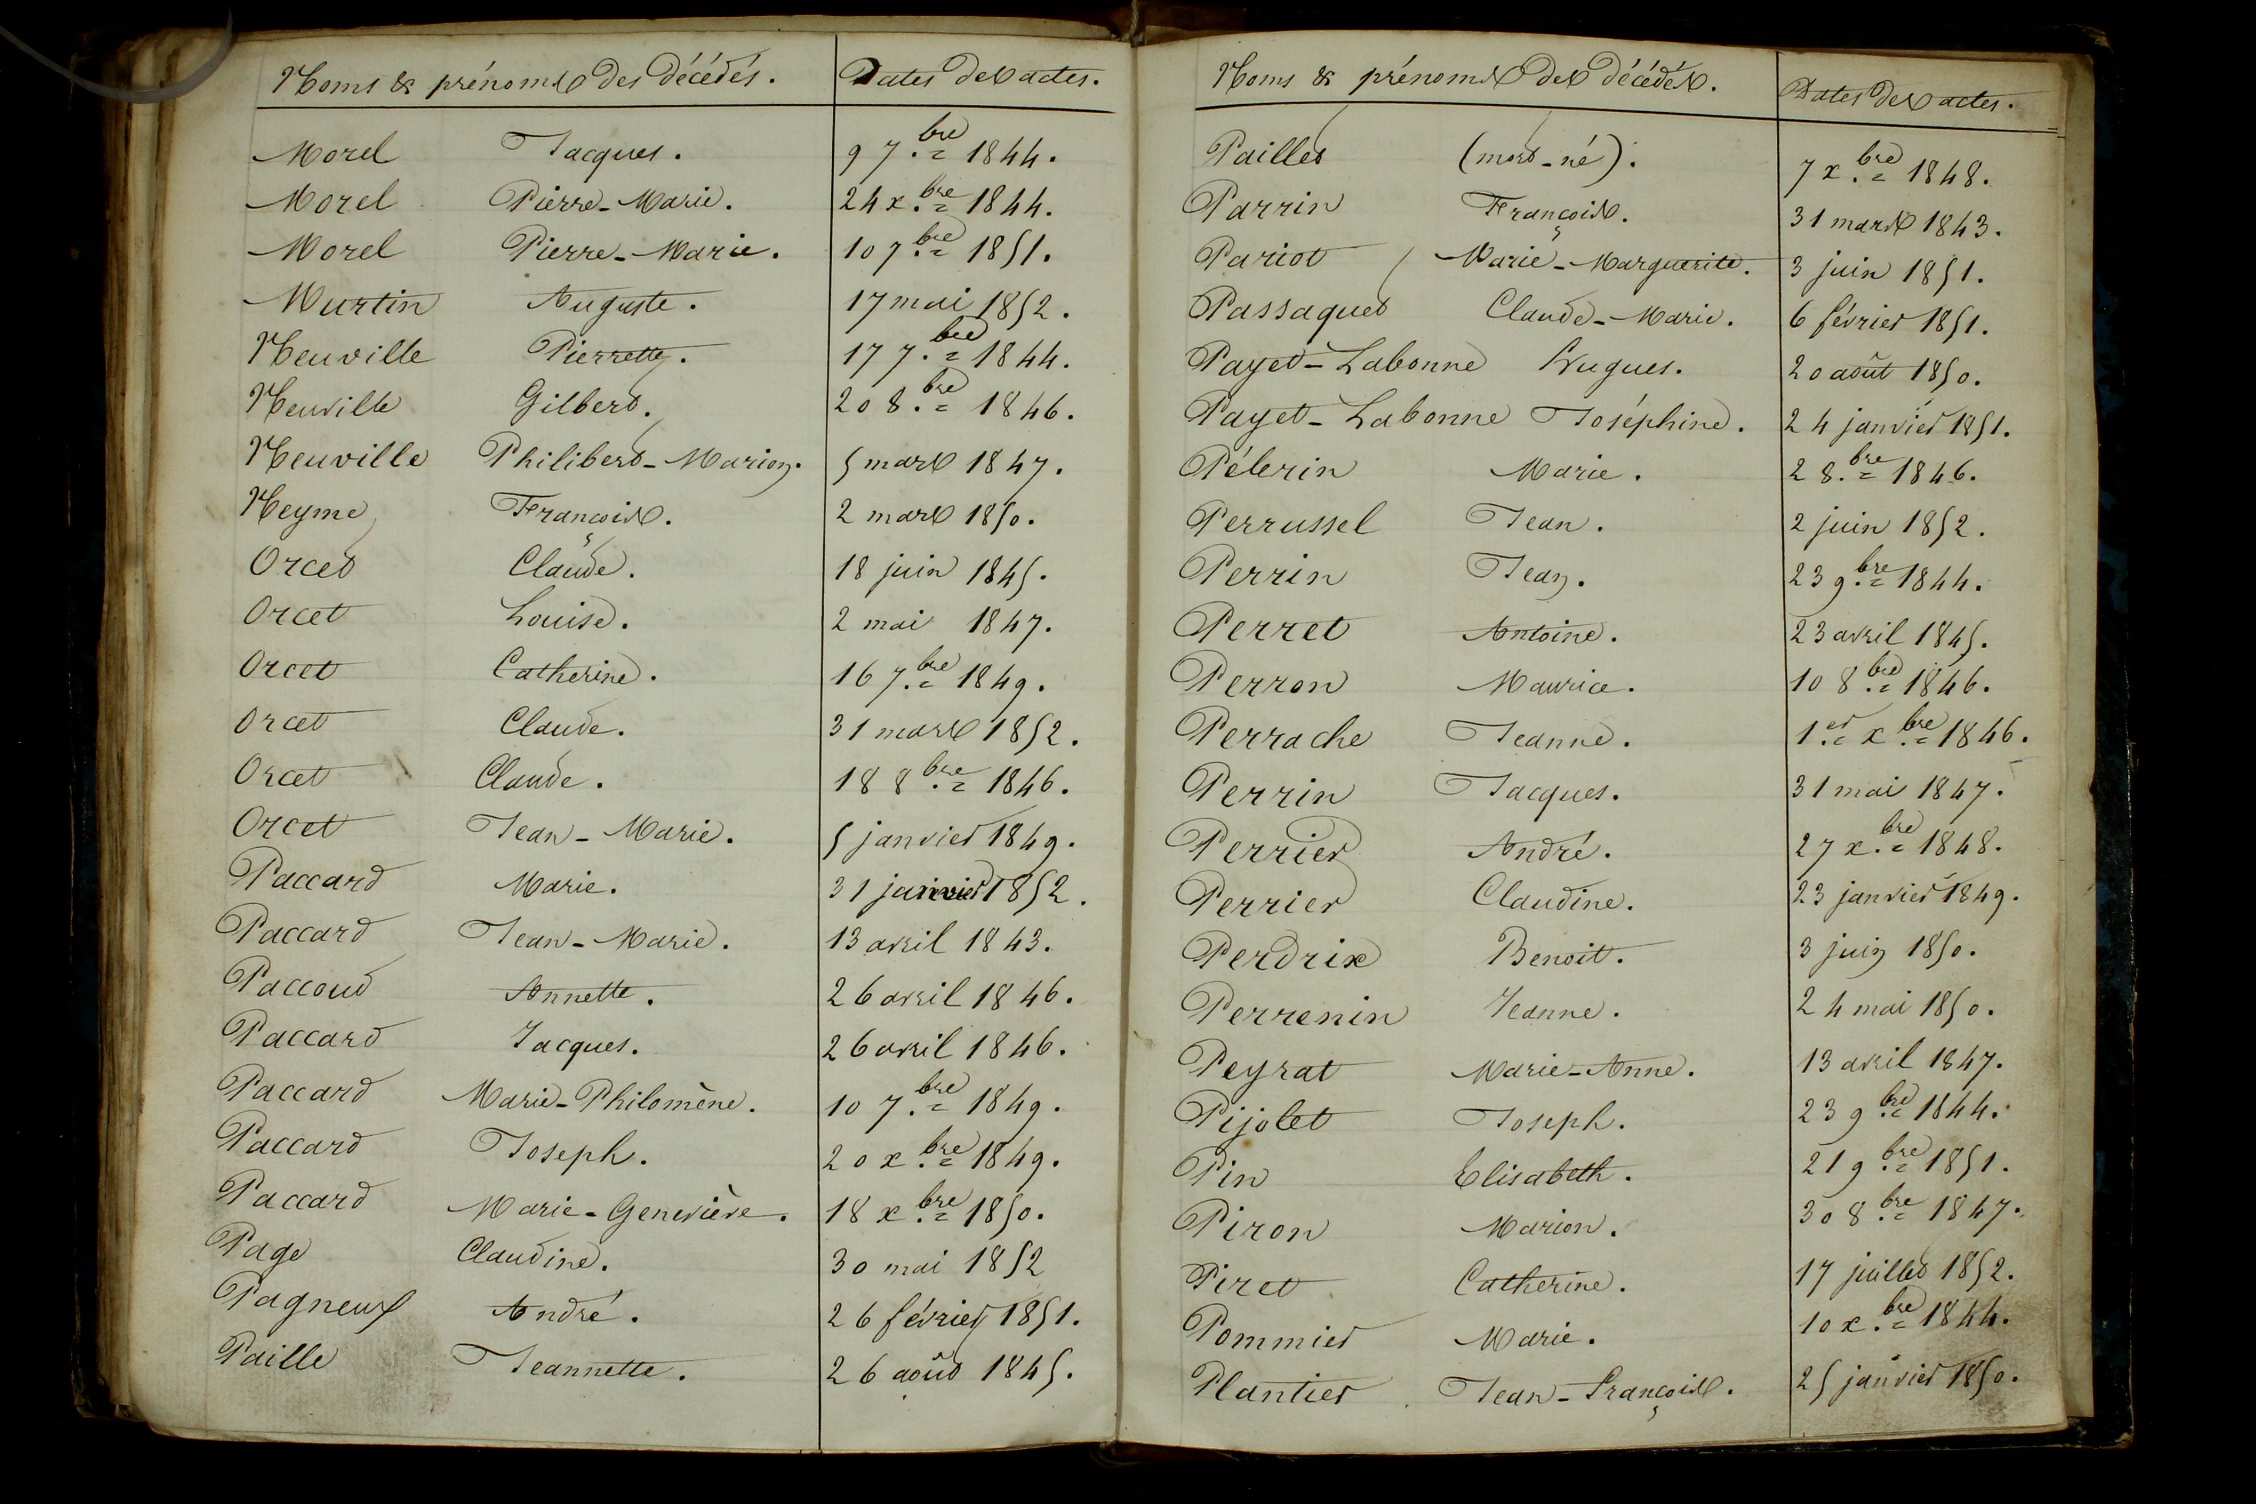 Noms & prénoms des décédés. Dates des actes.
Morel Jacques. 9 7.bre 1844.
Morel Pierre-Marie. 24 x.bre 1844.
Morel Pierre-Marie. 10 7.bre 1851.
Murtin Auguste. 17 mai 1852.
Neuville Pierrette. 17 7.bre 1844.
Neuville Gilbert. 20 8.bre 1846.
Neuville Philibert-Marion. 5 mars 1847.
Neyme François. 2 mars 1850.
Orcet Claude. 18 juin 1845.
Orcet Louise. 2 mai 1847.
Orcet Catherine. 16 7.bre 1849.
Orcet Claude. 31 mars 1852.
Orcet Claude. 18 8.bre 1846.
Orcet Jean-Marie. 5 janvier 1849.
Paccard Marie. 31 janvier 1852.
Paccard Jean-Marie. 13 avril 1843.
Paccoud Annette. 26 avril 1846.
Paccard Jacques. 26 avril 1846.
Paccard Marie-Philomène. 10 7.bre 1849.
Paccard Joseph. 20 x.bre 1849.
Paccard Marie-Geneviève. 18 x.bre 1850.
Page Claudine. 30 mai 1852
Pagneux André. 26 février 1851.
Paille Jeannette. 26 août 1845.
Noms & prénoms des décédés. Dates des actes.
Paillet (mort-né). 7 x.bre 1848.
Parrin François. 31 mars 1843.
Pariot Marie-Marguerite. 3 juin 1851.
Passaquet Claude-Marie. 6 février 1851.
Payet-Labonne Hugues. 20 août 1850.
Payet-Labonne Joséphine. 24 janvier 1851.
Pélerin Marie. 2 8.bre 1846.
Perrussel Jean. 2 juin 1852.
Perrin Jean. 23 9.bre 1844.
Perret Antoine. 23 avril 1845.
Perron Maurice. 10 8.bre 1846.
Perrache Jeanne. 1.er x.bre 1846.
Perrin Jacques. 31 mai 1847.
Perrier André. 27 x.bre 1848.
Perrier Claudine. 23 janvier 1849.
Perdrix Benoit. 3 juin 1850.
Perrenin Jeanne. 24 mai 1850.
Peyrat Marie-Anne. 13 avril 1847.
Pijolet Joseph. 23 9.bre 1844.
Pin Elisabeth. 21 9.bre 1851.
Piron Marion. 30 8.bre 1847.
Piret Catherine. 17 juillet 1852.
Pommier Marie. 10 x.bre 1844.
Plantier Jean-François. 25 janvier 1850.